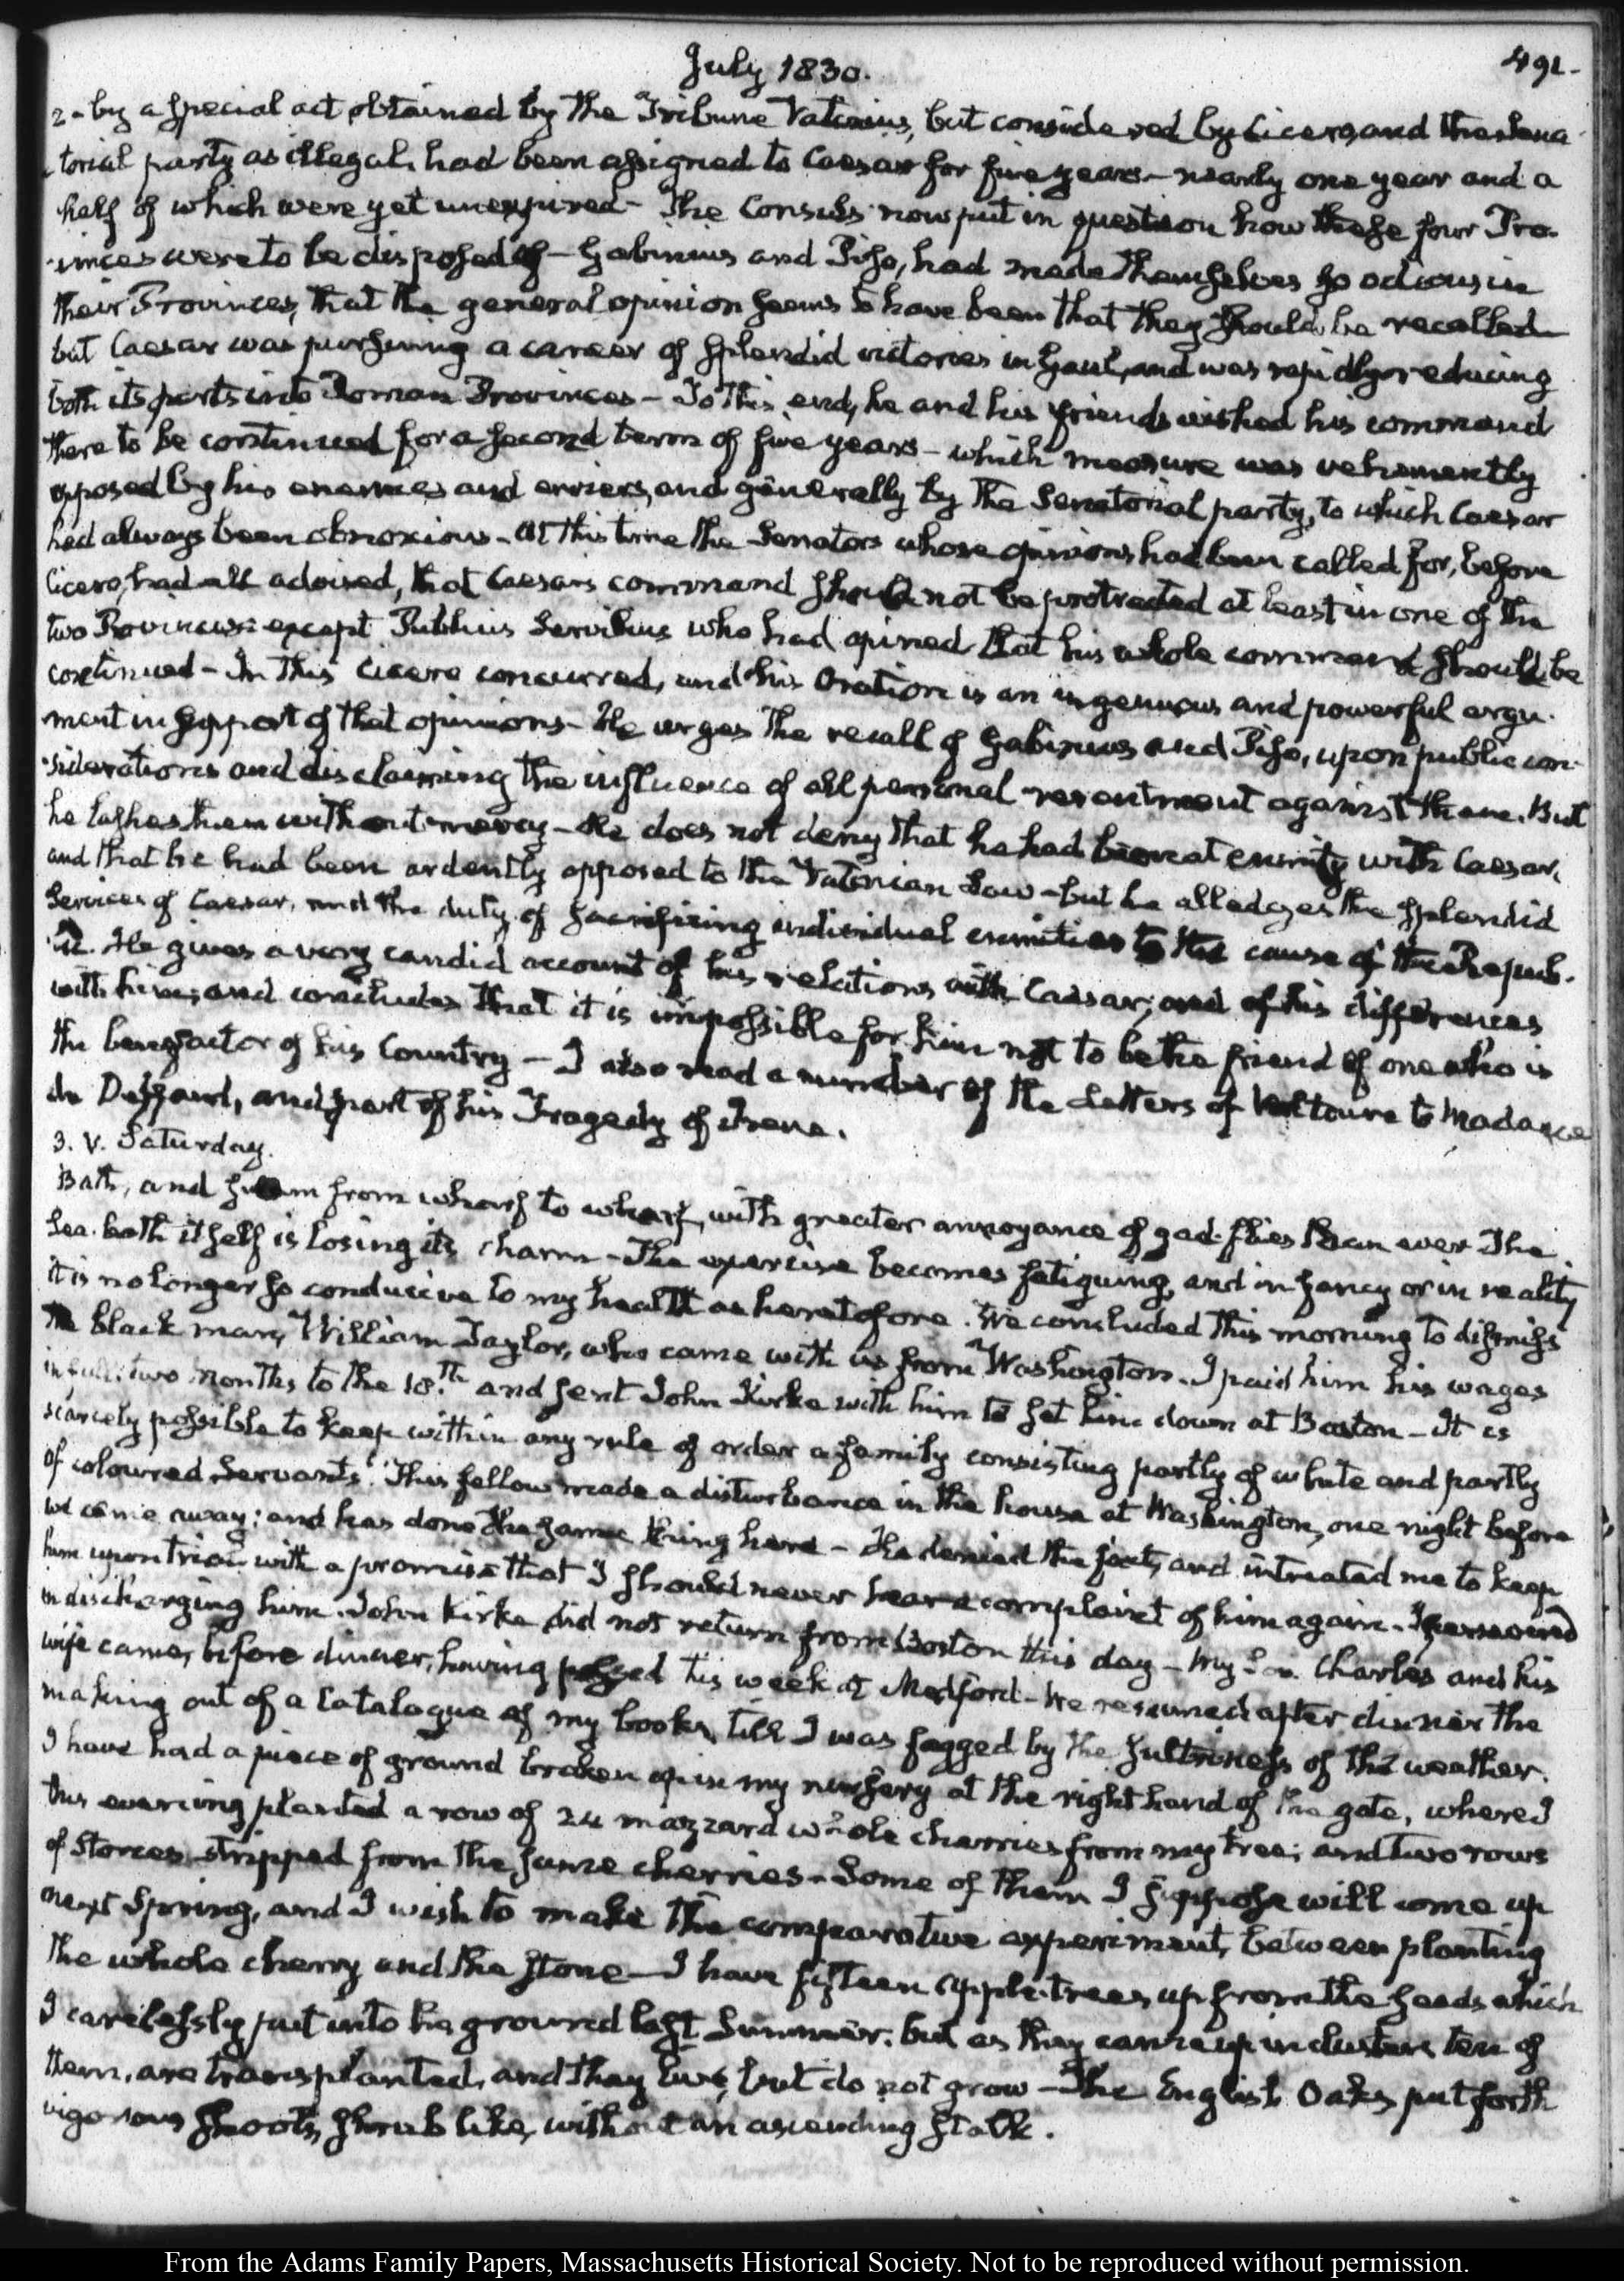 July 1830.
491.
2 - by a special act obtained by the Tribune Vatinius, but considered by Cicero, and the Sena-
torial party as illegal, had been assigned to Caesar for five years - nearly one year and a
half of which were yet unexpired - The Consuls now put in question how these four Pro-
vinces were to be disposed of - Gabinius and Piso, had made themselves so odious in
their Provinces, that the general opinion seems to have been that they should be recalled
but Caesar was pursuing a career of splendid victories in Gaul, and was rapidly reducing
both its parts into Roman Provinces - To this end, he and his friends wished his command
there to be continued for a second term of five years - which measure was vehemently
opposed by his enemies and enviers, and generally by the Senatorial party, to which Caesar
had always been obnoxious - At this time the Senators whose opinions had been called for, before
Cicero, had all advised, that Caesars command should not be protracted at least in one of the
two Provinces: except Publius Servilius who had opined that his whole command should be
continued - In this Cicero concurred, and his Oration is an ingenuous and powerful argu-
ment in support of that opinion - He urges the recall of Gabinius and Piso, upon public con-
siderations and disclaiming the influence of all personal resentment against them. But
he lashes them without mercy - He does not deny that he had been at enmity with Caesar,
and that he had been ardently opposed to the Vatinian Law - but he alledges the splendid
Services of Caesar, and the duty of sacrificing individual enmities to the cause of the Repub-
lic. He gives a very candid account of his relations with Caesar, and of his differences
with him; and concludes that it is impossible for him not to be the friend of one who is
the benefactor of his Country - I also read a number of the Letters of Voltaire to Madame
du Deffand, and part of his Tragedy of Irene.
3. V. Saturday.
Bath, and swam from wharf to wharf, with greater annoyance of gad-flies than ever. The
Sea-bath itself is losing its charm - The exercise becomes fatiguing, and in fancy or in reality
it is no longer so conducive to my health as heretofore. We concluded this morning to dismiss
the black man, William Taylor, who came with us from Washington. I paid him his wages
in full: two months to the 18.th and sent John Kirke with him to set him down at Boston - It is
scarcely possible to keep within any rule of order a family consisting partly of white and partly
of coloured Servants. This fellow made a disturbance in the house at Washington, one night before
we came away; and has done the same thing here - He denied the fact, and intreated me to keep
him upon trial with a promise that I should never hear a complaint of him again. I persevered
in discharging him. John Kirke did not return from Boston this day - My Son Charles and his
wife came, before dinner, having passed this week at Medford - We resumed after dinner the
making out of a Catalogue of my books, till I was fagged by the sultriness of the weather.
I have had a piece of ground broken up in my nursery at the right hand of the gate, where I
this evening planted a row of 24 mazzard whole cherries from my tree; and two rows
of Stones stripped from the same cherries - Some of them I suppose will come up
next Spring, and I wish to make the comparative experiment, between planting
the whole cherry and the stone - I have fifteen apple-trees up from the seeds which
I carelessly put into the ground last Summer: but as they came up in clusters ten of
them, are transplanted, and they live, but do not grow - The English Oaks put forth
vigorous shoots, shrub like, without an ascending stalk.
From the Adams Family Papers, Massachusetts Historical Society. Not to be reproduced without permission.